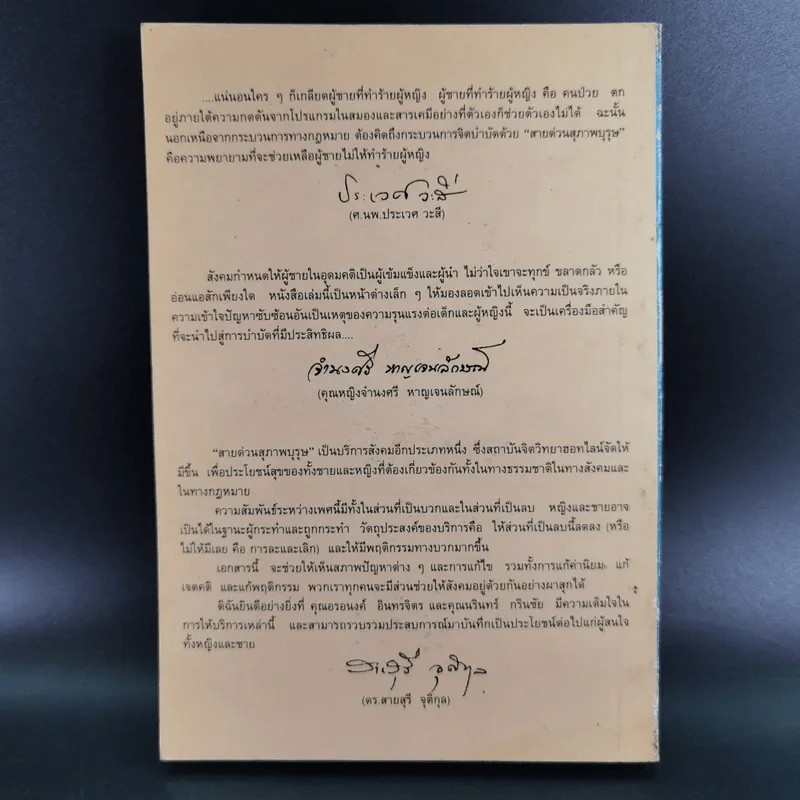 ....แน่นอนใคร ๆ ก็เกลียดผู้ชายที่ทำร้ายผู้หญิง ผู้ชายที่ทำร้ายผู้หญิง คือ คนป่วย ตก
อยู่ภายใต้ความกดดันจากโปรแกรมในสมองและสารเคมีอย่างที่ตัวเองก็ช่วยตัวเองไม่ได้ ฉะนั้น
นอกเหนือจากกระบวนการทางกฎหมาย ต้องคิดถึงกระบวนการจิตบำบัดด้วย "สายด่วนสุภาพบุรุษ"
คือความพยายามที่จะช่วยเหลือผู้ชายไม่ให้ทำร้ายผู้หญิง
ประเวศ วะสี
(ศ.นพ.ประเวศ วะสี)
สังคมกำหนดให้ผู้ชายในอุดมคติเป็นผู้เข้มแข็งและผู้นำ ไม่ว่าใจเขาจะทุกข์ ขลาดกลัว หรือ
อ่อนแอสักเพียงใด หนังสือเล่มนี้เป็นหน้าต่างเล็ก ๆ ให้มองลอดเข้าไปเห็นความเป็นจริงภายใน
ความเข้าใจปัญหาซับซ้อนอันเป็นเหตุของความรุนแรงต่อเด็กและผู้หญิงนี้ จะเป็นเครื่องมือสำคัญ
ที่จะนำไปสู่การบำบัดที่มีประสิทธิผล....
จำนงศรี หาญเจนลักษณ์
(คุณหญิงจำนงศรี หาญเจนลักษณ์)
"สายด่วนสุภาพบุรุษ" เป็นบริการสังคมอีกประเภทหนึ่ง ซึ่งสถาบันจิตวิทยาฮอทไลน์จัดให้
มีขึ้น เพื่อประโยชน์สุขของทั้งชายและหญิงที่ต้องเกี่ยวข้องกันทั้งในทางธรรมชาติในทางสังคมและ
ในทางกฎหมาย
ความสัมพันธ์ระหว่างเพศนี้มีทั้งในส่วนที่เป็นบวกและในส่วนที่เป็นลบ หญิงและชายอาจ
เป็นได้ในฐานะผู้กระทำและถูกกระทำ วัตถุประสงค์ของบริการคือ ให้ส่วนที่เป็นลบนี้ลดลง (หรือ
ไม่ให้มีเลย คือ การละและเลิก) และให้มีพฤติกรรมทางบวกมากขึ้น
เอกสารนี้ จะช่วยให้เห็นสภาพปัญหาต่าง ๆ และการแก้ไข รวมทั้งการแก้ค่านิยม แก้
เจตคติ และแก้พฤติกรรม พวกเราทุกคนจะมีส่วนช่วยให้สังคมอยู่ด้วยกันอย่างผาสุกได้
ดิฉันยินดีอย่างยิ่งที่ คุณอรอนงค์ อินทรจิตร และคุณนรินทร์ กรินชัย มีความเต็มใจใน
การให้บริการเหล่านี้ และสามารถรวบรวมประสบการณ์มาบันทึกเป็นประโยชน์ต่อไปแก่ผู้สนใจ
ทั้งหญิงและชาย
สายสุรี จุติกุล
(ดร.สายสุรี จุติกุล)